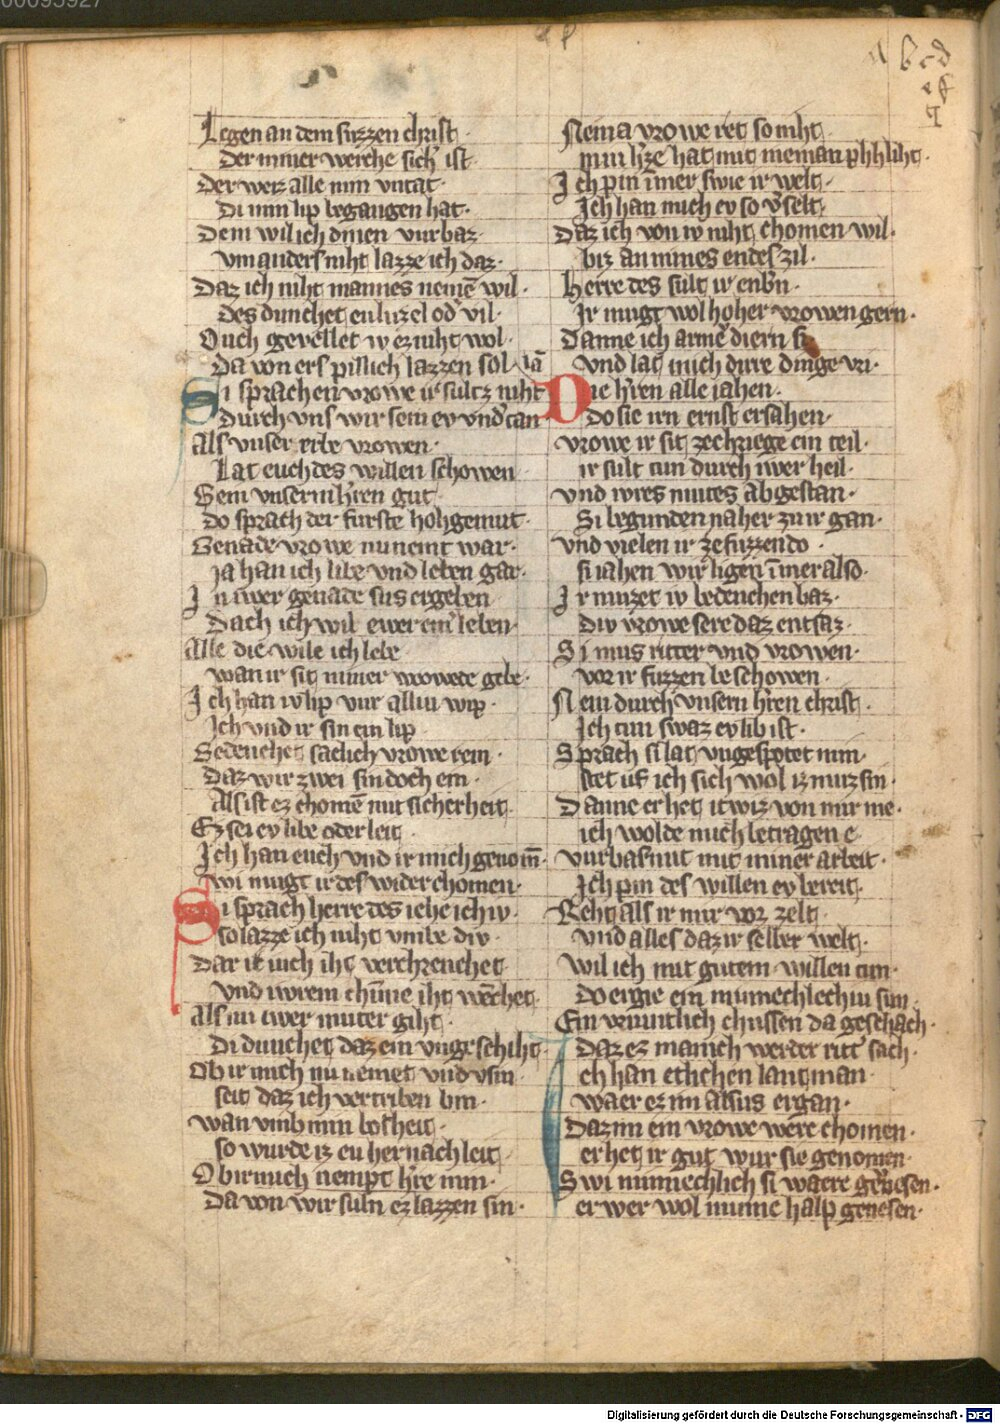 Legen an dem suzzen christ
Der miner werche sich' ist
Der weiz alle min vntat
Di min lip begangen hat
Dem wil ich dinen vurbaz
vm anders niht lazze ich daz
Daz ich niht mannes nemē wil
des dunchet eu luzel od' vil
Ouch gevellet iv ez niht wol
Da von ers pillich lazzen sol
Si sprachen vrowe ir sultz niht lā
Durch vns wir sein ev vnd'tan
Als vnser erbe vrowen
Lat euch des willen schowen
Gein vnserm h'ren gut
do sprach der furste hohgemut
Genade vrowe nu nemt war
ja han ich libe vnd leben gar
In iwer genade sus ergeben
Dach ich wil ewer ein leben
Alle die wile ich lebe
wan ir sit miner vrowede gebe
Ich han iv lip vur alliu wip
Ich vnd ir sin ein lip
Gedenchet sælich vrowe rein
Daz wir zwei sin doch ein
Als ist ez chomē mit sicherheit
Ez sei ev libe oder leit
Ich han euch vnd ir mich genom̄
wi mugt ir des wider chomen
Si sprach herre des iehe ich iv
so lazze ich niht vmbe div
Dar it iuch iht verchrenchet
vnd iwrem chūne iht wēchet
Als nu iwer muter giht
Di dunchet daz ein vngeschiht
Ob ir mich nu nemet vnd vsin
seit daz ich vertriben bin
wan vmb min bosheit
so wurde iz eu her nach leit
Ob ir mich nempt h're min
Da von wir suln ez lazzen sin
Neina vrowe ret so niht
min h'ze hat mit nieman phhliht
Ich pin īmer swie ir welt
Ich han mich ev so v'selt
Daz ich von iv niht chomen wil
biz an mines endes zil
Herre des sult ir enb'n
Ir mugt wol hoher vrowen gern
Danne ich armē diern si
vnd lat mich dirre dinge vri
Die h'ren alle jahen
Do sie irn ernst ersahen
vrowe ir sit ze chriege ein teil
ir sult tun durch iwer heil
vnd iwres mutes abgestan
Si begunden naher zu ir gan
vnd vielen ir ze fuzzen do
si iahen wir ligen īmer also
Ir muzet iv bedenchen baz
Div vrowe sere daz entsaz
Si mus ritter vnd vrowen
vor ir fuzzen beschowen
Nein durch vnsern h'ren christ
Ich tun swaz ev lib ist
Sprach si lat vngespotet min
stet uf ich sich wol iz muz sin
Danne er het itwiz von mir me
ich wolde mich betragen e
vurbas mit miner arbeit
Ich pin des willen ev bereit
Reht als ir mir vor zelt
vnd alles daz ir selber welt
wil ich mit gutem willen tun
Do ergie ein minnechlechiu sun
Ein vriuntlich chussen da geschach
Daz ez manich werder ritt' sach
Ich han etlichen lantman
waer ez im alsus ergan
Daz im ein vrowe were chomen
er het ir gut wur sie genomen
Swi minnechlich si waere gewesen
er wer wol minne halp genesen
Digitalisierung gefördert durch die Deutsche Forschungsgemeinschaft - DFG